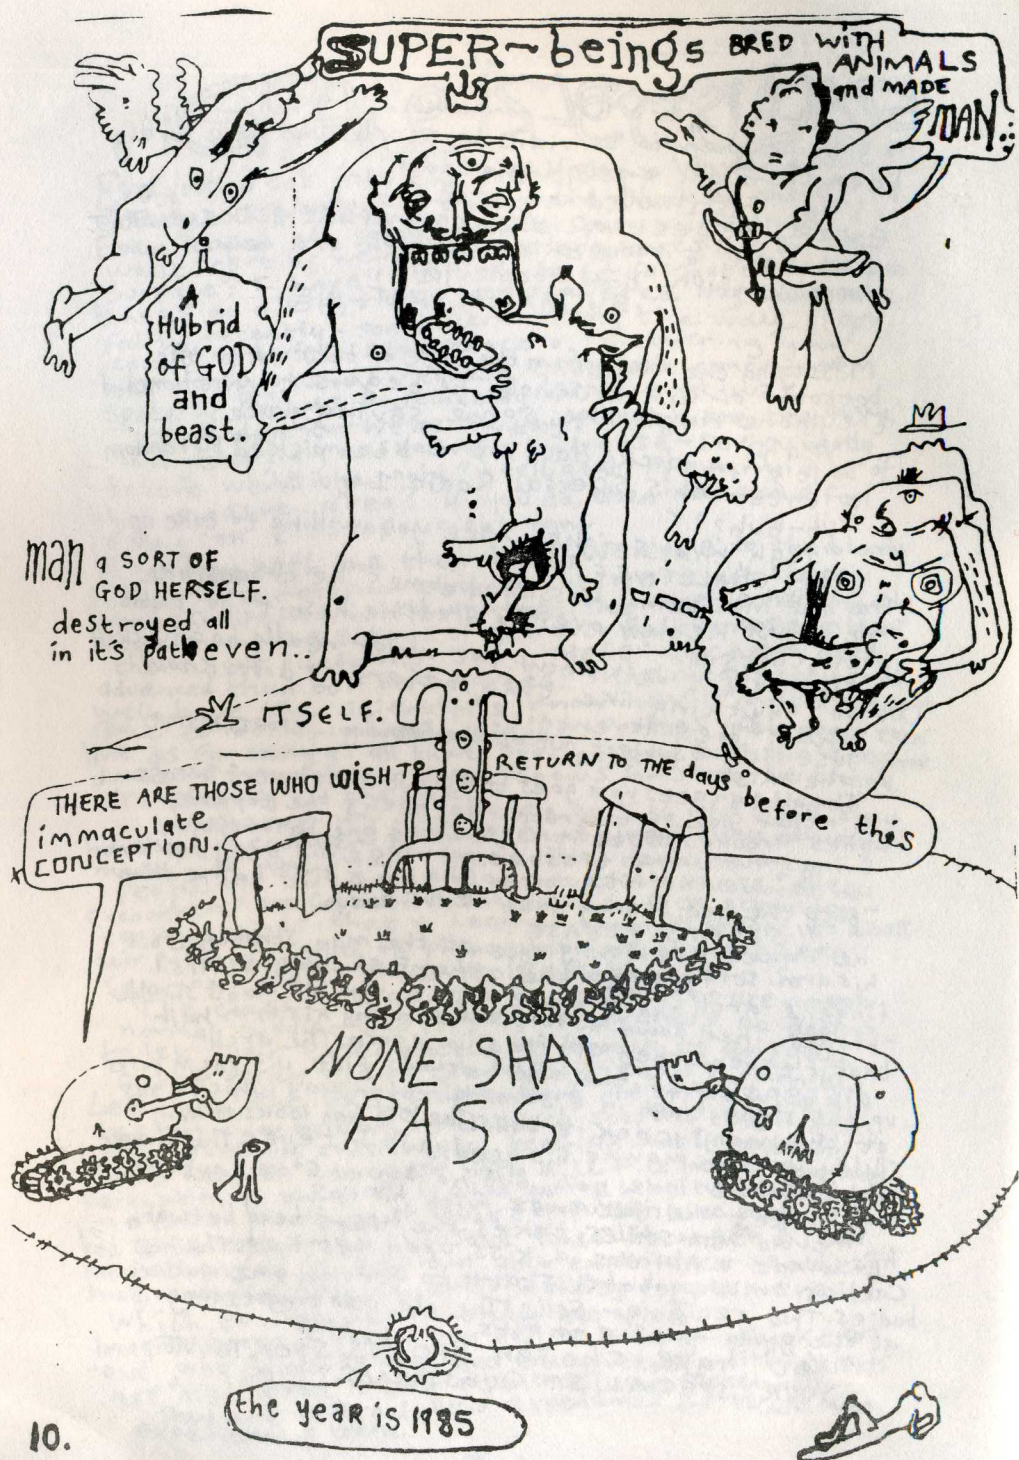 SUPER~beings BRED WITH
ANIMALS
and MADE
MAN...
A
Hybrid
of GOD
and
beast.
man a SORT OF
GOD HERSELF.
destroyed all
in it's path even..
ITSELF.
THERE ARE THOSE WHO WISH TO RETURN TO THE days before this
immaculate
CONCEPTION.
NONE SHALL
PASS
ATARI
the year is 1985
10.